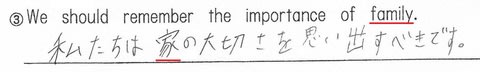 ③We should remember the importance of family.
私たちは家の大切さを思い出すべきです。